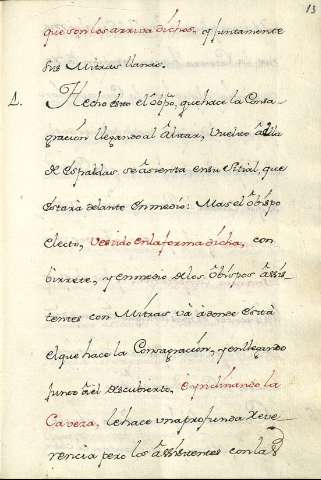 13
que son los arriva dichos, y juntamente
sus Mitras llanas.
4. Hecho esto el ôbpo, que hace la Consa-
gración llegando al Altar, vuelto â ella
de espaldas se âsienta en su Sitial, que
estarà delante en medio: Mas el ôbispo
electo, vestido en la forma dicha, con
birrete, y en medio de los ôbispos âssis-
tentes con Mitras và â donde està
el que hace la Consagración, y en llegando
junto â el descubierto, e ynclinando la
Caveza, le hace una profunda Reve-
rencia pero los âssistentes con las